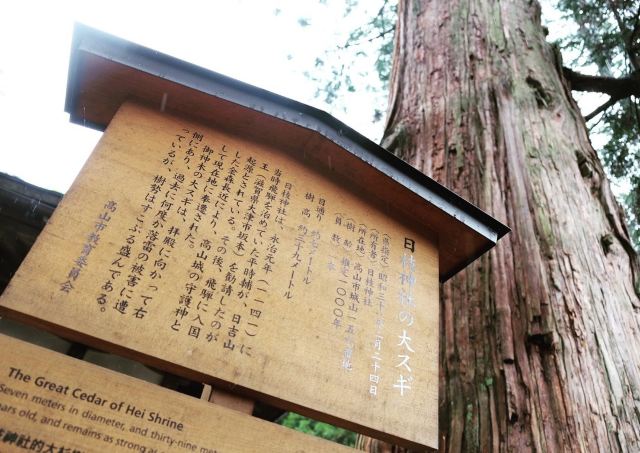 日枝神社の大スギ
(県指定) 昭和三十一年二月二十四日
(所有者) 日枝神社
(所在地) 高山市城山一五六番地
(樹 齢) 推定一〇〇〇年
(員 数) 一本
目通り 約七メートル
樹 高 約三十九メートル
日枝神社は、永治元年(一一四一)に
当時飛騨を治めていた平時輔が、日吉山
王(滋賀県大津市坂本)を勧請したのが
起源とされている。その後、飛騨に入国
した金森長近により、高山城の守護神と
して現在地に奉遷された。
御神木の大スギは、拝殿に向かって右
側にあり、過去に何度か落雷の被害に遭
っているが、樹勢はすこぶる盛んである。
高山市教育委員会
The Great Cedar of Hei Shrine
Seven meters in diameter, and thirty-nine met
ears old, and remains as strong a
神社的大杉